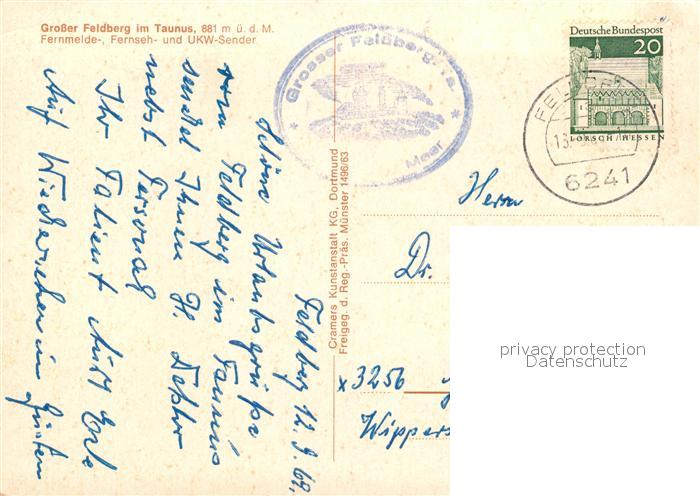 Großer Feldberg im Taunus, 881 m ü. d. M.
Fernmelde-, Fernseh- und UKW-Sender
Grosser Feldberg/Ts.
Meer
Deutsche Bundespost
20
LORSCH/HESSEN
6241
Feldberg 12.9.69.
Schöne Urlaubsgrüße
vom Feldberg im Taunus
sendet Ihnen H. Doktor
nebst Personal
Ihr Patient
Auf Wiedersehen im
Cramers Kunstanstalt KG, Dortmund
Freigeg. d. Reg.-Präs. Münster 1496/63
Herrn
Dr.
x 3256
Wippers
privacy protection
Datenschutz